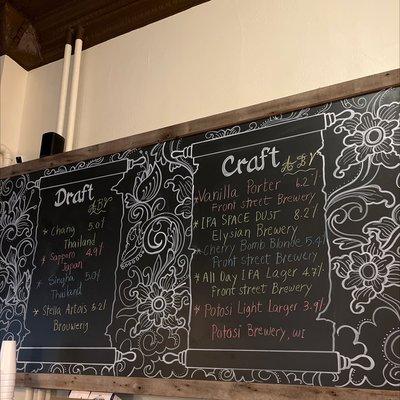 Draft ABV
* Chang 5.0%
Thailand
* Sapporo 4.9%
Japan
* Singha 5.0%
Thailand
* Stella Artois 5.2%
Brouwery
Craft ABV
* Vanilla Porter 6.2%
Front street Brewery
* IPA SPACE DUST 8.2%
Elysian Brewery
* Cherry Bomb Blonde 5.4%
Front street Brewery
* All Day IPA Lager 4.7%
Front street Brewery
* Potosi Light Larger 3.9%
Potosi Brewery, WI